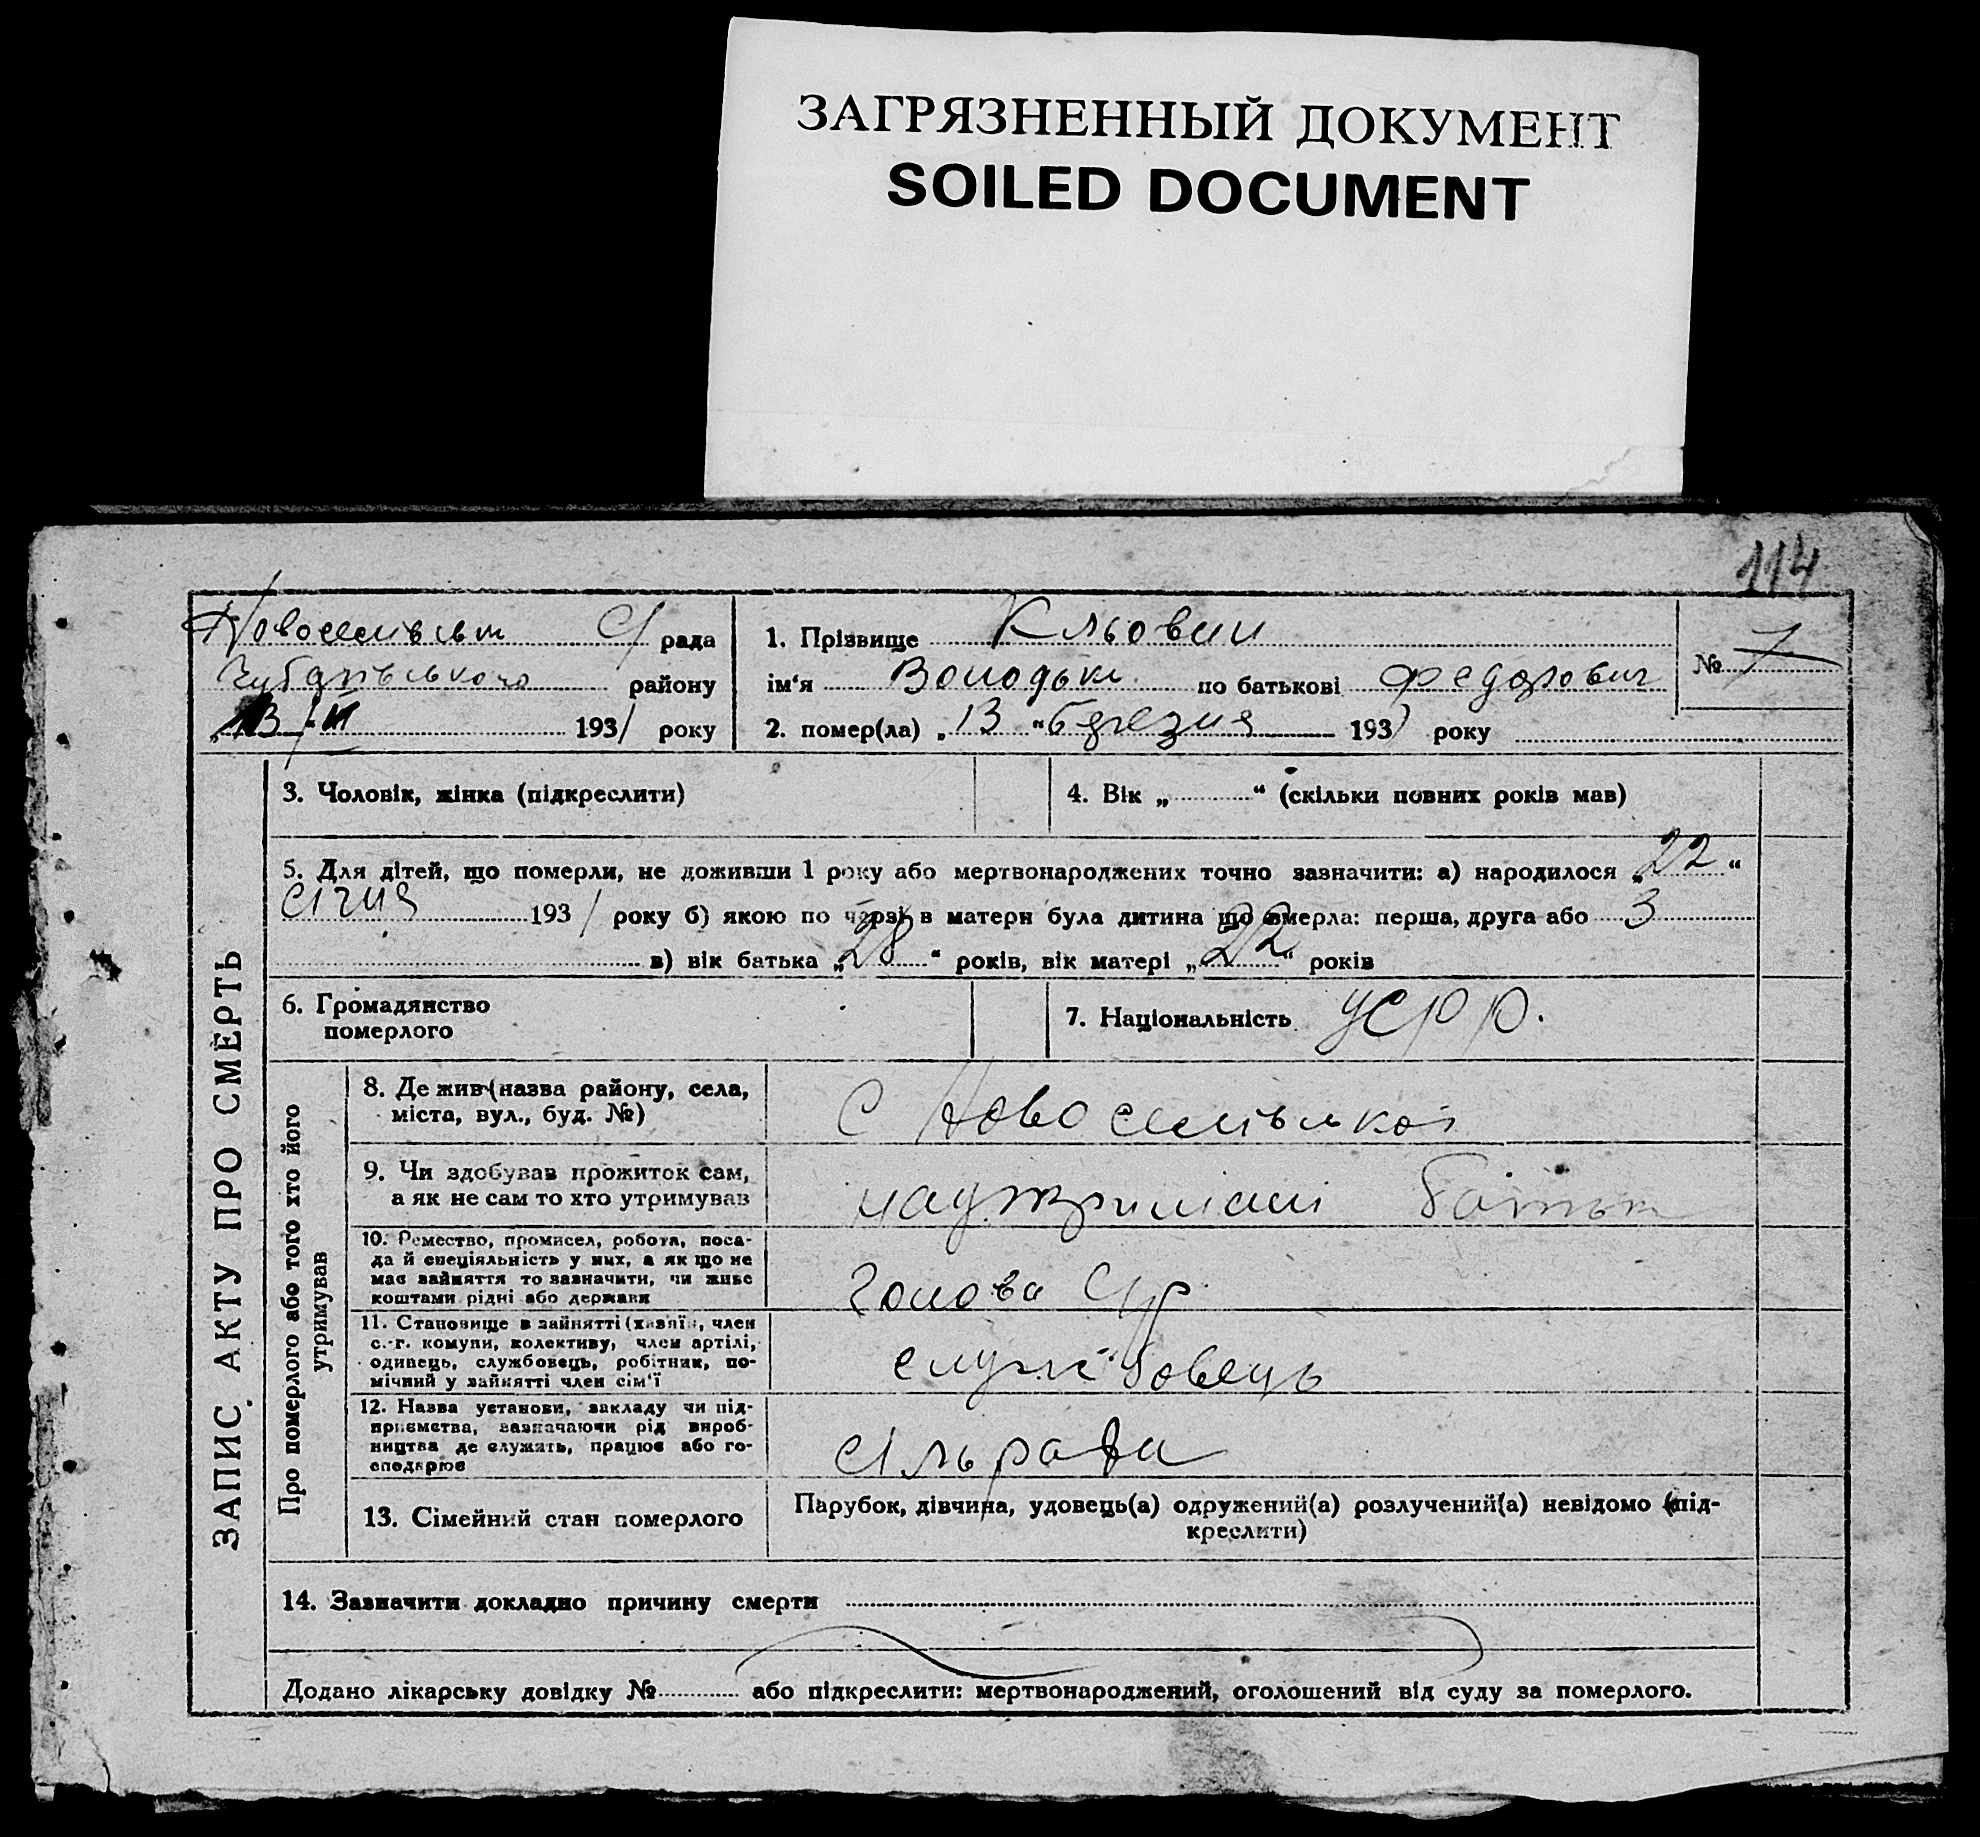 ЗАГРЯЗНЕННЫЙ ДОКУМЕНТ
SOILED DOCUMENT
114
С/рада
району
193/ року
1. Прізвище
№ 7
ім'я по батькові Федорович
2. помер(ла) „13“ березня 193/ року
ЗАПИС АКТУ ПРО СМЕРТЬ
3. Чоловік, жінка (підкреслити)
4. Вік „ “ (скільки повних років мав)
5. Для дітей, що померли, не доживши 1 року або мертвонароджених точно зазначити: а) народилося „22“
січня 193/ року б) якою по черзі в матери була дитина що вмерла: перша, друга або 3
в) вік батька „28“ років, вік матері „22“ років
6. Громадянство
померлого
7. Національність УСРР.
Про померлого або того хто його
утримував
8. Де жив (назва району, села,
міста, вул., буд. №)
с
9. Чи здобував прожиток сам,
а як не сам то хто утримував
10. Ремество, промисел, робота, поса-
да й спеціяльність у них, а як що не
має зайняття то зазначити, чи живе
коштами рідні або держави
голова С/р
11. Становище в зайнятті (хазяїн, член
с.-г. комуни, колективу, член артілі,
одинець, службовець, робітник, по-
мічний у зайнятті член сім'ї
службовець
12. Назва установи, закладу чи під-
приємства, зазначаючи рід вироб-
ництва де служить, працює або го-
сподарює
сільрада
13. Сімейний стан померлого
Парубок, дівчина, удовець(а) одружений(а) розлучений(а) невідомо (під-
креслити)
14. Зазначити докладно причину смерти
Додано лікарську довідку № або підкреслити: мертвонароджений, оголошений від суду за померлого.